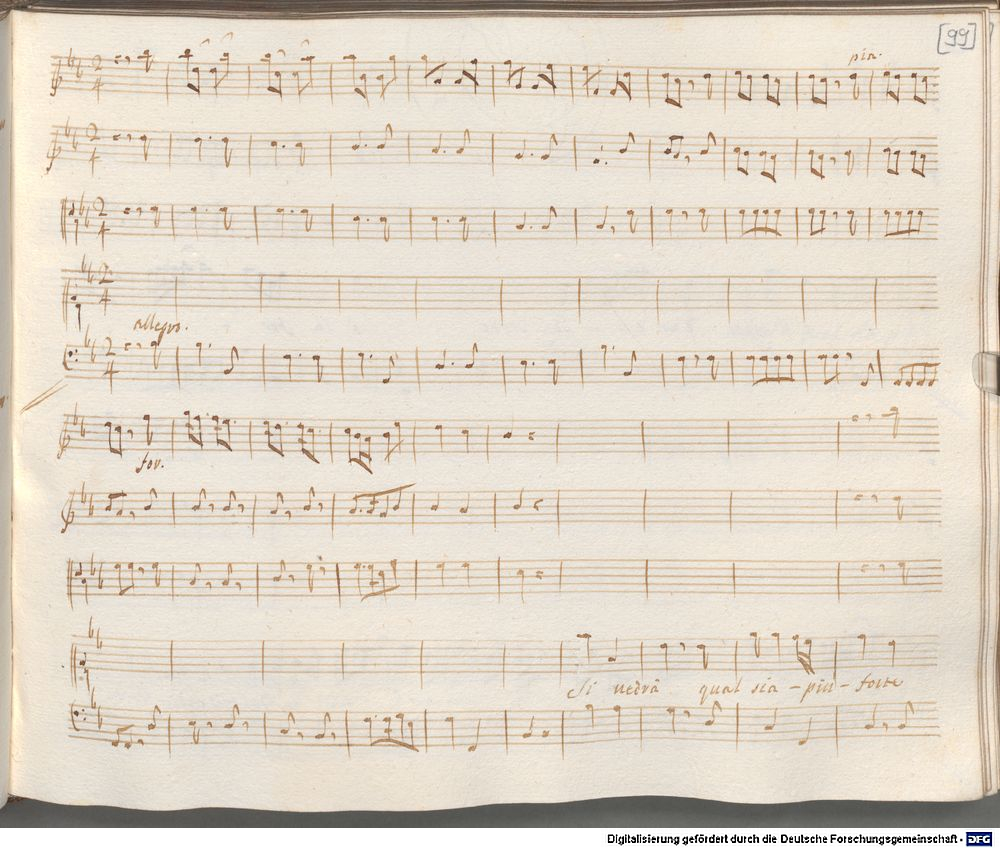 [99]
pia.
allegro.
for.
Si vedrà qual sia - piu - forte
Digitalisierung gefördert durch die Deutsche Forschungsgemeinschaft - DFG